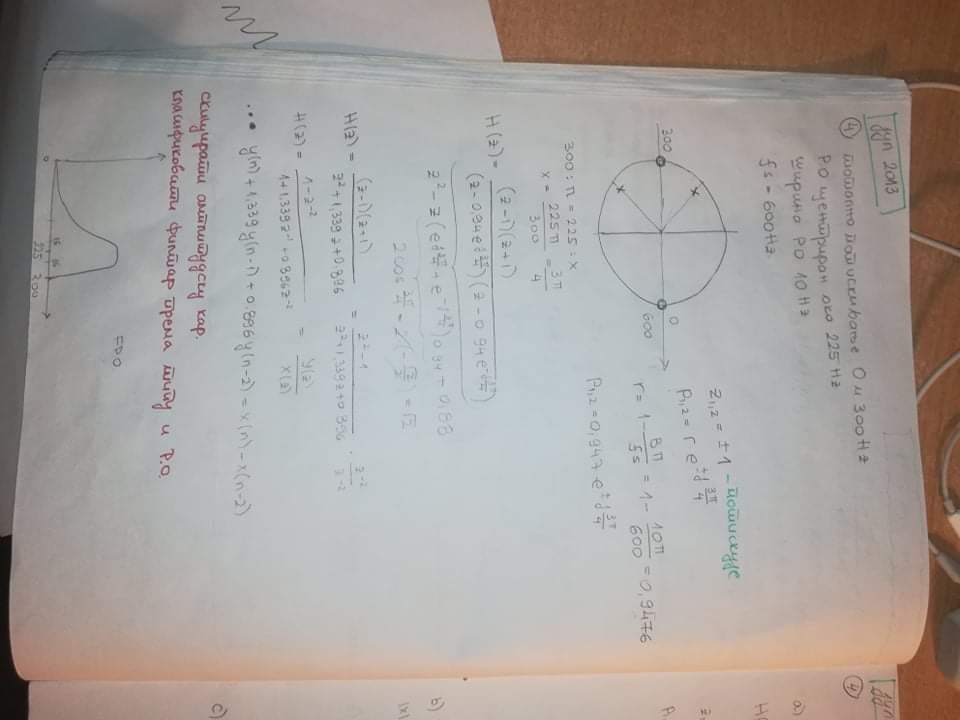 јун 2013
④ тотално потискивање 0 и 300Hz
PO центриран око 225 Hz
ширина PO 10 Hz
fs = 600Hz
300
0
600
z₁,₂ = ±1 - потискује
p₁,₂ = r e^(±j 3π/4)
r = 1 - Bπ/fs = 1 - 10π/600 = 0,9476
p₁,₂ = 0,947 e^(±j 3π/4)
300 : π = 225 : x
x = 225π/300 = 3π/4
H(z) = (z-1)(z+1) / (z - 0,94e^(j 3π/4)) (z - 0.94e^(-j 3π/4))
2cos 3π/4 = 2(-√2/2) = √2
H(z) = (z-1)(z+1) / z² + 1,339z + 0.896 = z² - 1 / z² + 1,339z + 0.896 · z⁻² / z⁻²
H(z) = 1 - z⁻² / 1 + 1,339z⁻¹ + 0.896z⁻² = Y(z) / X(z)
... • y(n) + 1,339 y(n-1) + 0.896 y(n-2) = x(n) - x(n-2)
скицирати амплитудску кар.
класификовати филтар према типу и P.O.
0
225
300